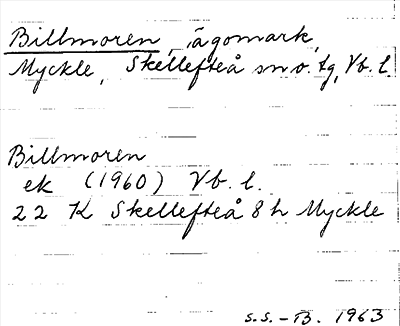 Billmoren, ägomark,
Myckle, Skellefteå sn o. tg, Vb. l.
Billmoren
ek (1960) Vb. l.
22 K Skellefteå 8 h Myckle
S.S. - B. 1963